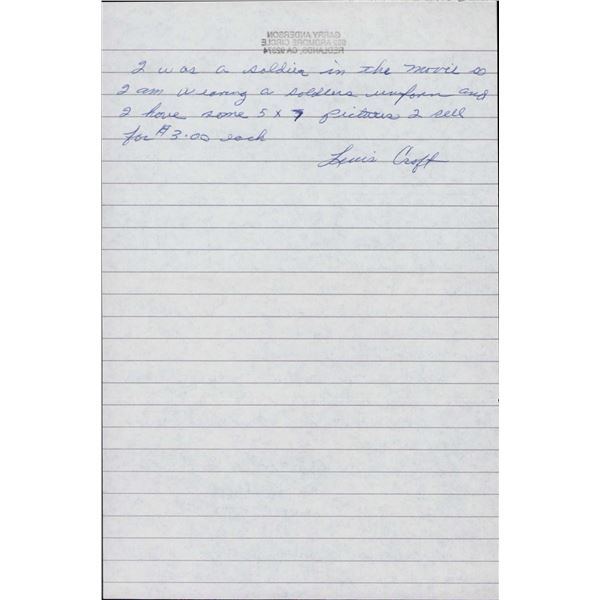 GARRY ANDERSON
552 ARDMORE CIRCLE
REDLANDS, CA 92374
I was a soldier in the movie so
I am wearing a soldiers uniform and
I have some 5 x 7 pictures I sell
for $3.00 each
Lewis Croft